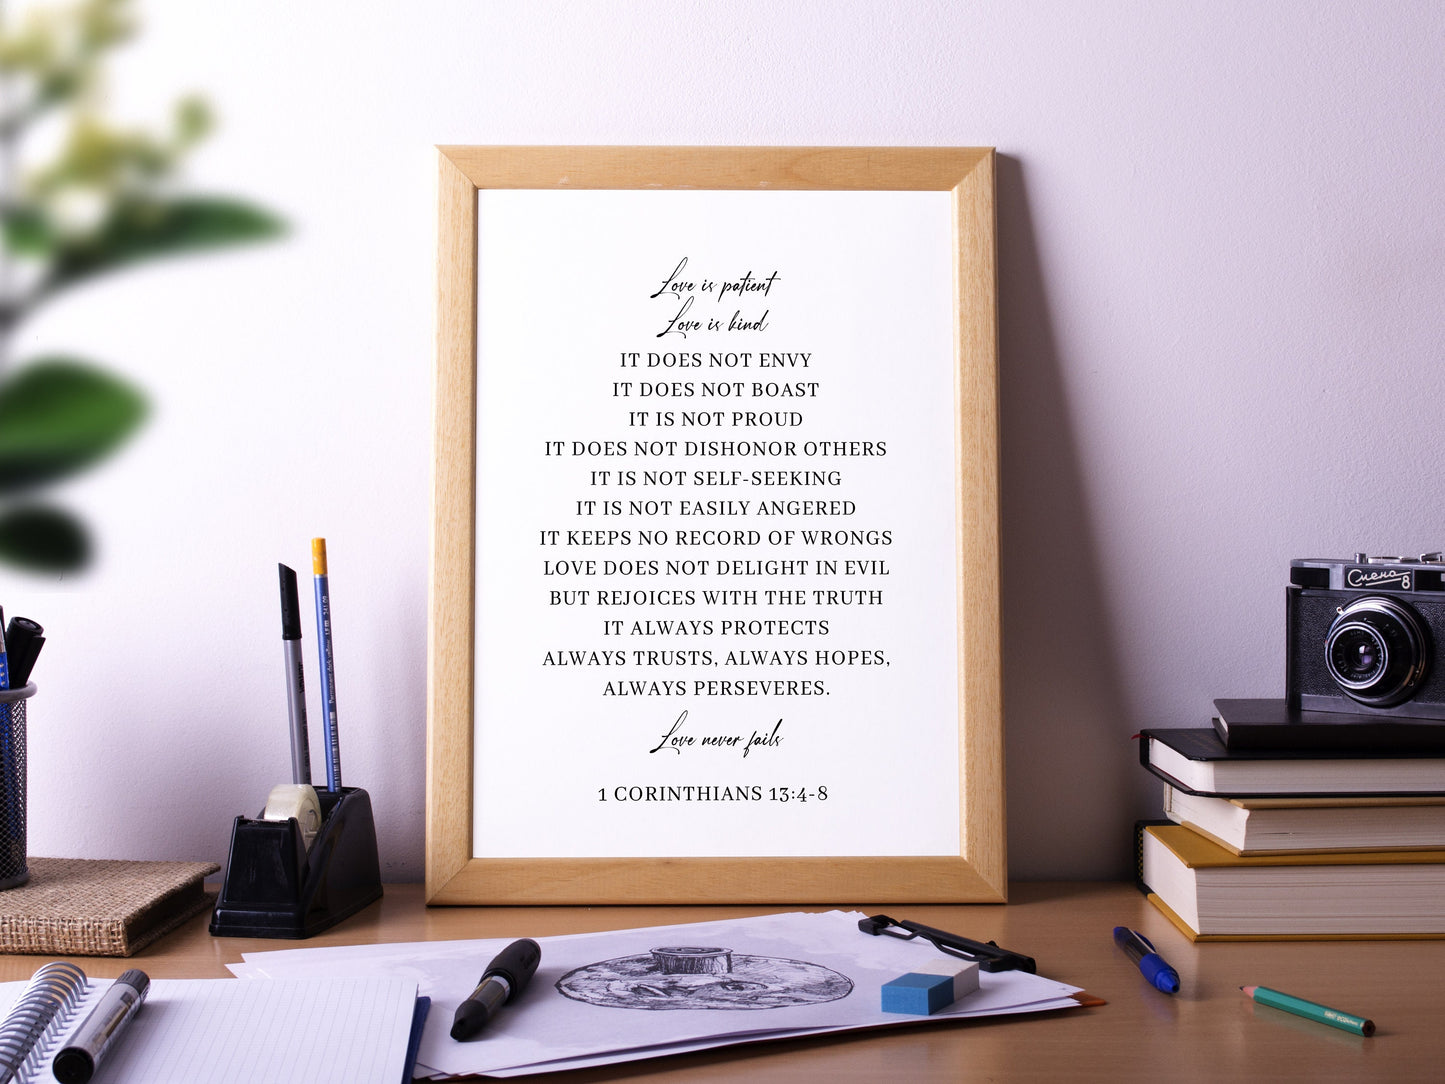 Love is patient
Love is kind
IT DOES NOT ENVY
IT DOES NOT BOAST
IT IS NOT PROUD
IT DOES NOT DISHONOR OTHERS
IT IS NOT SELF-SEEKING
IT IS NOT EASILY ANGERED
IT KEEPS NO RECORD OF WRONGS
LOVE DOES NOT DELIGHT IN EVIL
BUT REJOICES WITH THE TRUTH
IT ALWAYS PROTECTS
ALWAYS TRUSTS, ALWAYS HOPES,
ALWAYS PERSEVERES.
Love never fails
1 CORINTHIANS 13:4-8
Смена 8